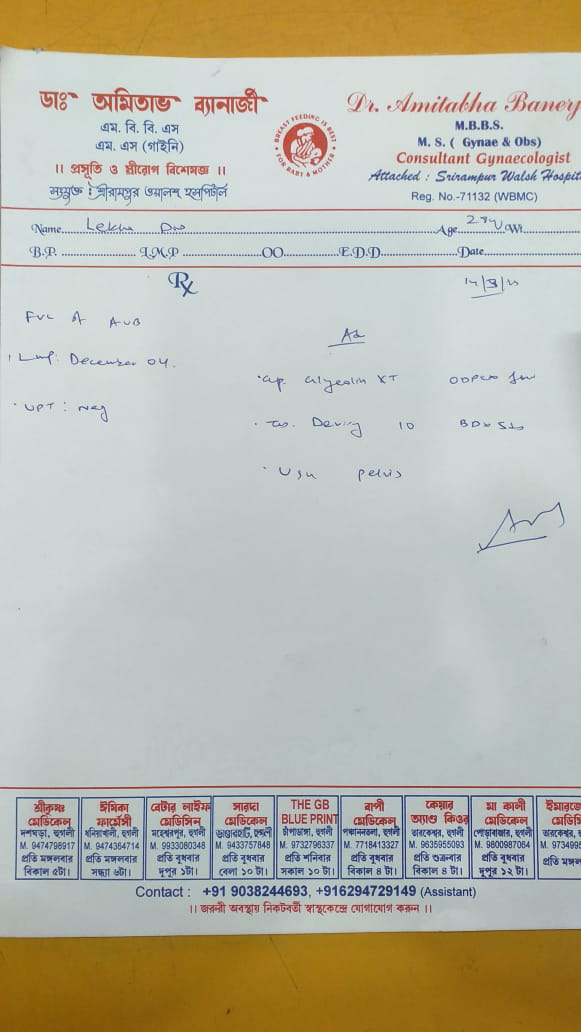 ডাঃ অমিতাভ ব্যানার্জী
এম. বি. বি. এস
এম. এস (গাইনি)
।। প্রসূতি ও স্ত্রীরোগ বিশেষজ্ঞ ।।
সংযুক্ত : শ্রীরামপুর ওয়ালশ হসপিটাল
BREAST FEEDING IS BEST
FOR BABY & MOTHER
Dr. Amitabha Banerj
M.B.B.S.
M. S. ( Gynae & Obs)
Consultant Gynaecologist
Attached : Srirampur Walsh Hospit
Reg. No.-71132 (WBMC)
Name Lekha Age Wt
B.P. L.M.P OO E.D.D Date
Rx
AUB
Lmp: December 04.
UPT: Neg
Adv
Cap. XT
Tab. 10
USG pelvis
শ্রীকৃষ্ণ মেডিকেল
দশঘড়া, হুগলী
M. 9474798917
প্রতি মঙ্গলবার
বিকাল ৫টা।
ঈসিকা ফার্মেসী
ধনিয়াখালী, হুগলী
M. 9474364714
প্রতি মঙ্গলবার
সন্ধ্যা ৬টা।
বেটার লাইফ মেডিসিন
মহেশ্বরপুর, হুগলী
M. 9933060348
প্রতি বুধবার
দুপুর ১টা।
সারদা মেডিকেল
ভাণ্ডারহাটি, হুগলী
M. 9433757848
প্রতি বুধবার
বেলা ১০ টা।
THE GB
BLUE PRINT
চাঁপাডাঙ্গা, হুগলী
M. 9732796337
প্রতি শনিবার
সকাল ১০ টা।
বাপী মেডিকেল
পঞ্চাননতলা, হুগলী
M. 7718413327
প্রতি বুধবার
বিকাল ৪ টা।
কেয়ার অ্যান্ড কিওর
তারকেশ্বর, হুগলী
M. 9635955093
প্রতি শুক্রবার
বিকাল ৪ টা।
মা কালী মেডিকেল
পোড়াবাজার, হুগলী
M. 9800987064
প্রতি বুধবার
দুপুর ১২ টা।
তারকেশ্বর,
M. 973499
প্রতি মঙ্গল
Contact : +91 9038244693, +916294729149 (Assistant)
।। জরুরী অবস্থায় নিকটবর্তী স্বাস্থ্যকেন্দ্রে যোগাযোগ করুন ।।